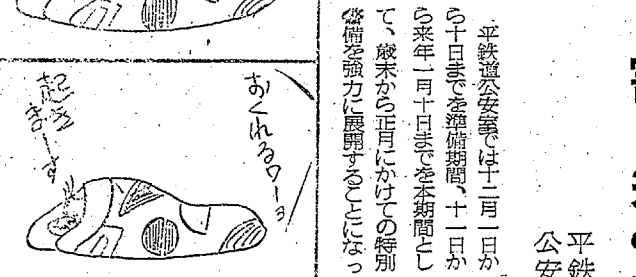 平鉄
公安
平鉄道公安室では十二月一日か
ら十日までを準備期間、十一日か
ら来年一月十日までを本期間とし
て、歳末から正月にかけての特別
警備を強力に展開することになっ
おくれるワーョ
起き
まーす